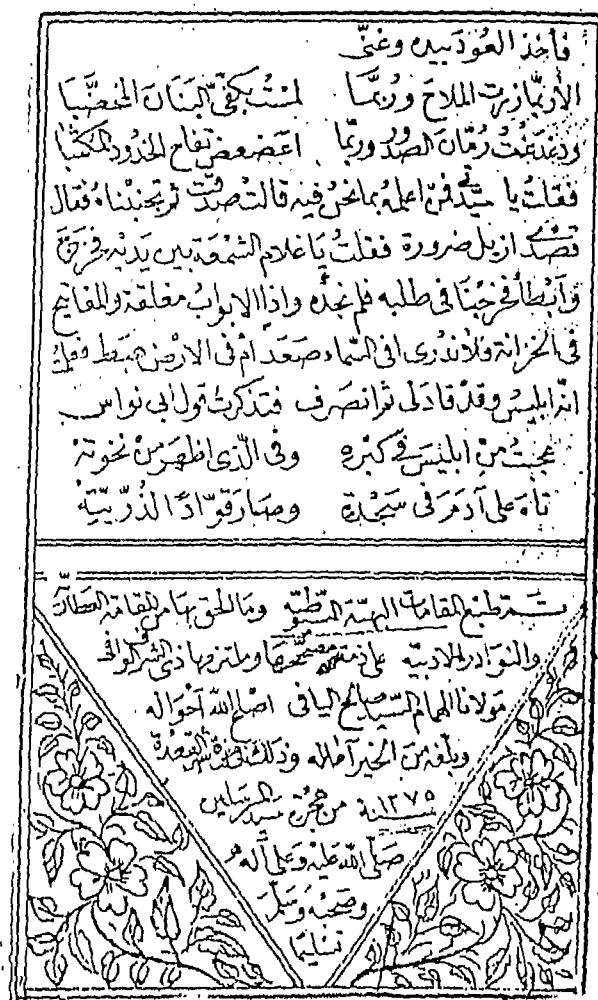 فأخذ العود بيده وغنّى
الا ربّما زرت الملاح وربّما لمست بكفى البنان المخضّبا
ودغدغت رمّان الصدور وربّما اعضعض تفاح الخدود المكتبا
فقلت يا سيّدتى فمن اعلمه بما نحن فيه قالت صدقت ثم تجنبناه فقال
قصدى ازيل ضرورة فقلت يا غلام الشمعة بين يديه فخرج
وابطأ فخرجنا فى طلبه فلم نجده واذا الابواب مغلقة والمفاتيح
فى الخزانة ولا ندرى افى السماء صعد ام فى الارض هبط فعلمت
انه ابليس وقد قاد لى ثم انصرف فتذكرت قول ابى نواس
عجبت من ابليس فى كبره وفى الذى اظهر من نخوته
تاه على آدم فى سجدة وصار قوّادًا لذرّيّته
تمّ طبع المقامات البهيّة السيوطيّه وما الحق بها من المقامة العطاريّة
والنوادر الادبيه على ذمة مصححها وملتزمها ذى الشرف الوافى
مولانا الهمام السيّد صالح اليافى اصلح الله احواله
وبلغه من الخير آماله وذلك فى غرة شهر القعدة
سنة ١٢٧٥ من هجرة سيد المرسلين
صلّى الله عليه وعلى آله
وصحبه وسلّم
تسليما